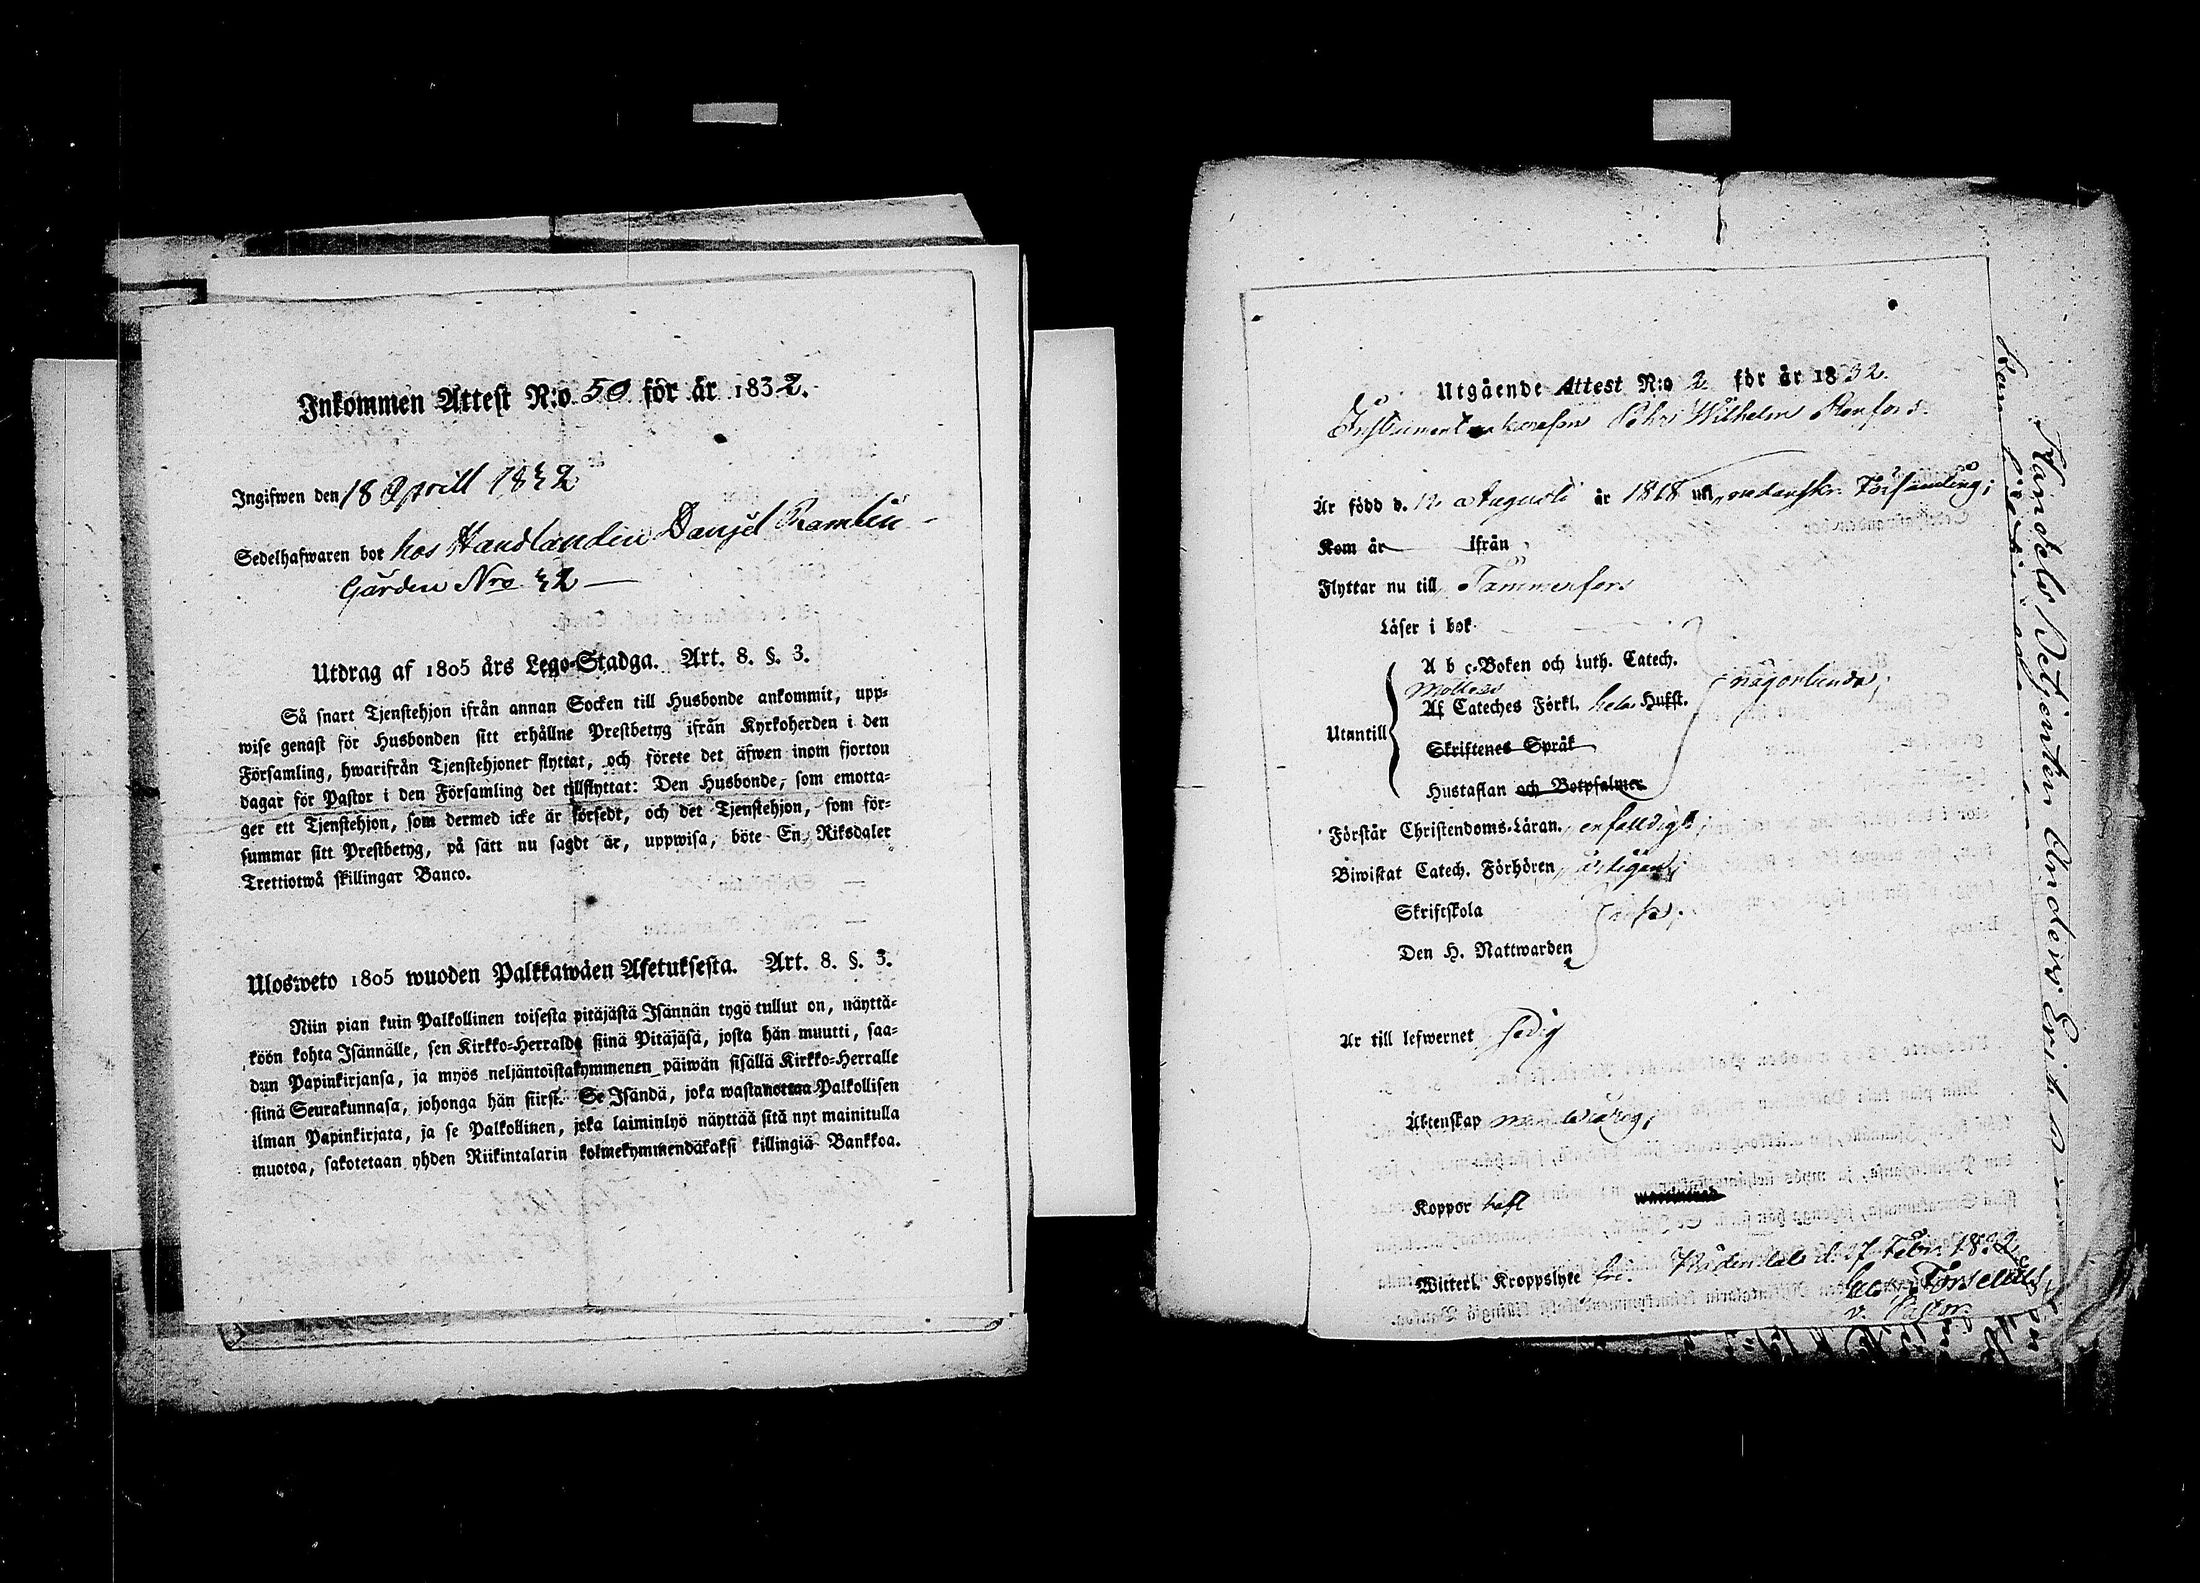 Inkommen Attest N:o 50 för är 1832.
Ingifwen den 18 Aprill 1832
Sedelhafwaren bor hos Handlanden Danjel Ramlin
Gården Nro 32
Utdrag af 1805 års Lego-Stadga. Art. 8. §. 3.
Så snart Tjenstehjon ifrån annan Socken till Husbonde ankommit, upp-
wise genast för Husbonden sitt erhållne Prestbetyg ifrån Kyrkoherden i den
Församling, hwarifrån Tjenstehjonet flyttat, och förete det äfwen inom fjorton
dagar för Pastor i den Församling det tillflyttat: Den Husbonde, som emotta-
ger ett Tjenstehjon, som dermed icke är försedt, och det Tjenstehjon, som för-
summar sitt Prestbetyg, på sätt nu sagdt är, uppwisa, böte En Riksdaler
Trettiotwå skillingar Banco.
Ulosweto 1805 wuoden Palkkawäen Asetuksesta. Art. 8. §. 3.
Niin pian kuin Palkollinen toisesta pitäjästä Isännän tygö tullut on, näyttä-
köön kohta Isännälle, sen Kirkko-Herralda siinä Pitäjäsä, josta hän muutti, saa-
dun Papinkirjansa, ja myös neljäntoistakymmenen päiwän sisällä Kirkko-Herralle
siinä Seurakunnasa, johonga hän siirst. Se Isändä, joka wastanottaa Palkollisen
ilman Papinkirjata, ja se Palkollinen, joka laiminlyö näyttää sitä nyt mainitulla
muotoa, sakotetaan yhden Riikintalarin kolmekymmendäkaksi killingiä Bankkoa.
Utgående Attest N:o 2 för är 1832.
Pehr Wilhelm Renfors
Är född d. 12 Augusti år 1818 uti nedanskr. Församling;
Kom år ifrån
Flyttar nu till Tammerfors
Läser i bok
A b c-Boken och Luth. Catech. någorlunda;
Möllers
Af Cateches Förkl. hela Husst.
Utantill
Skriftenes Språk
Hustaflan och Botpsalmer
Förstår Christendoms-Läran enfaldigt;
Biwistat Catech. Förhören
Skriftskola
Den H. Nattwarden
Är till lefwernet sedig
Äktenskap
Koppor haft
Witterl. Kroppslyte fri. d. 27 Febr. 1832
v. Pastor.
Handels Betjenten Anders Erik